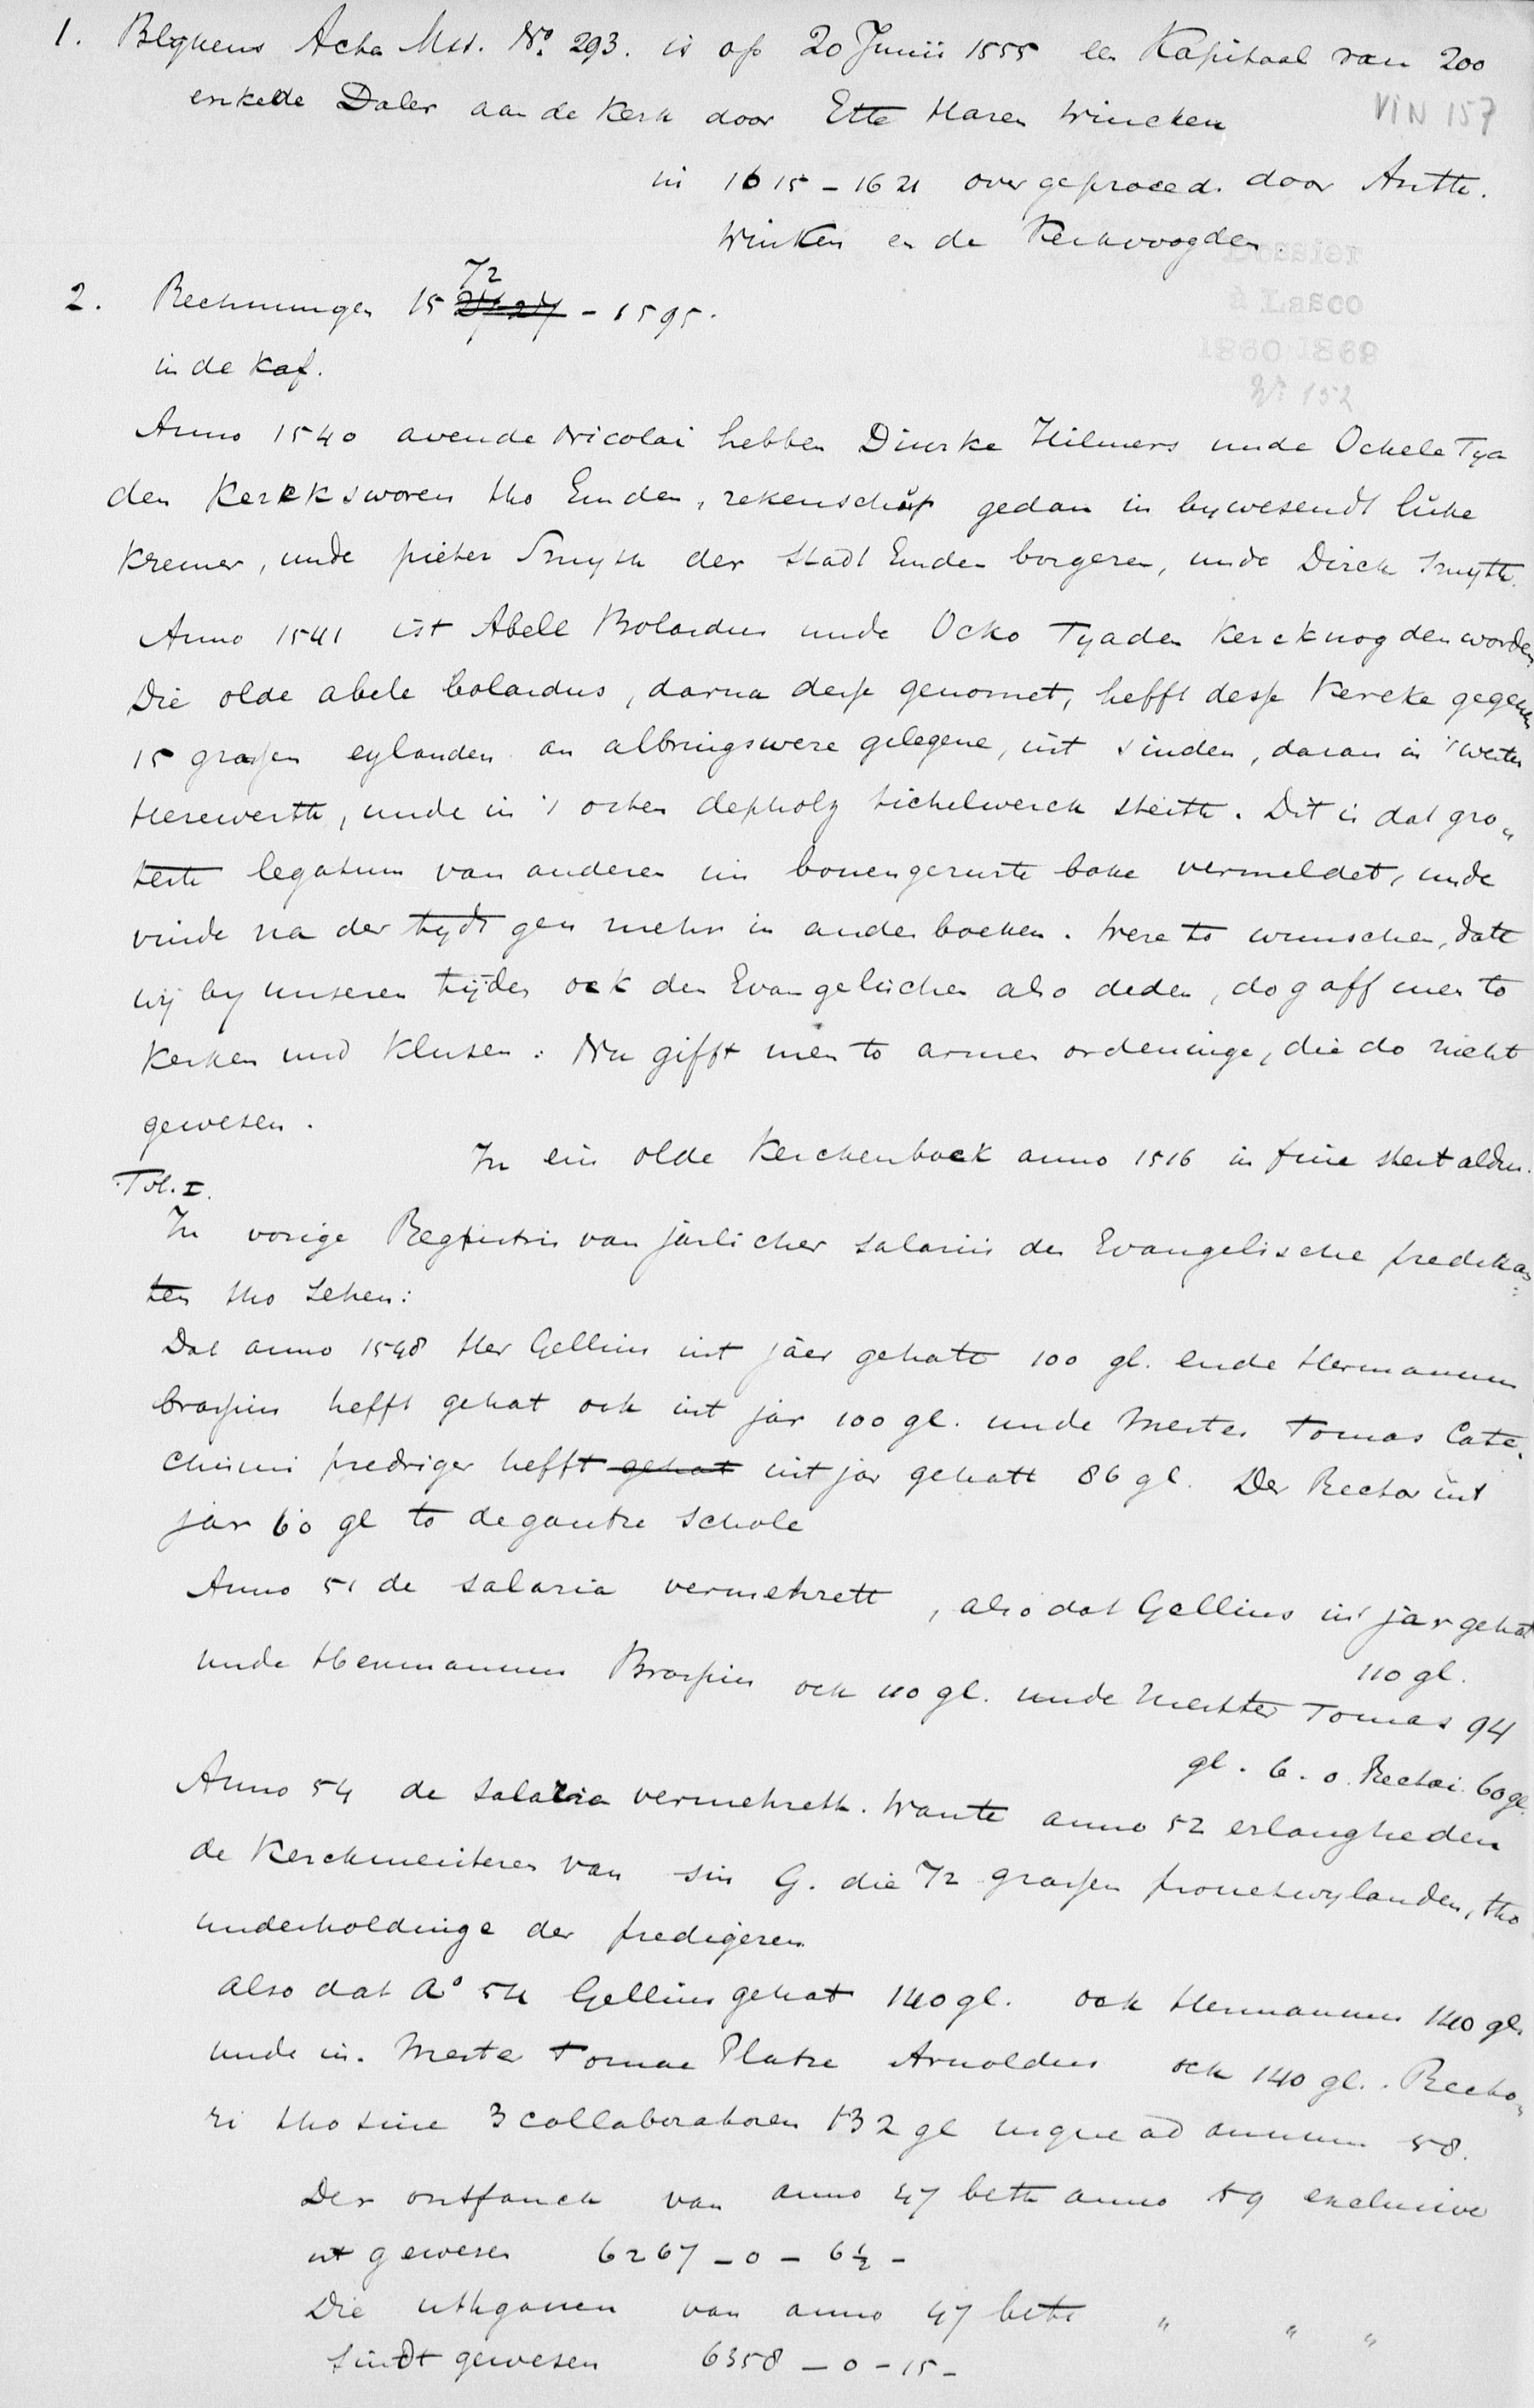 1. Blykens Acta Mss. No. 293. is op 20 Junii 1555 een Kapitaal van 200
enkelde Daler aan de Kerk door Ette Haren Wincken
VIN 157
in 1615 - 1621 over geproced. door Anth.
Winken en de Kerkvoogden.
2. Rechnungen 1572 - 1595.
in de Kaf.
Anno 1540 avende Nicolai hebben Diurke Hilmers unde Ockele Tya
den Kercksworen tho Emden, rekenschup gedan in bywesendt luke
Kremer, unde pieter Smyth der Stadt Emden borgeren, unde Dirck Smyth.
Anno 1541 ist Abele Bolardus unde Ocko Tyaden Kerckuogden worden
Die olde abele bolardus, darna desse genomet, hefft desse Kercke gegeven
15 grassen eylanden an albringswere gelegene, int suiden, daran in 't westen
Herewerth, unde in 't osten depholz tichelwerck steith. Dit is dat gro„
teste legatum van anderen im bouengerurte boke vermeldet, unde
vinde na der tydt gen mehr in ander boeken. Were to wunschen, datt
wij by unseren tijden ock den Evangelischen also deden, do gaff men to
Kerken und Klusen: Nu gifft men to armen ordeninge, die do nicht
gewesen.
In ein olde Kerckenboek anno 1516 in fine stert aldus.
Fol. I.
In vorige Registris van jarlicher salariis der Evangelische predikan
ten tho sehen:
Dat anno 1548 Her Gellius int jaer gehatt 100 gl. ende Hermannus
brassius hefft gehat ock int jar 100 gl. unde Mester Tomas Cate-
chismi prediger hefft gehat int jar gehatt 86 gl. Der Rector int
jar 60 gl to de gantze schole
Anno 51 de salaria vermehrett, also dat Gellius int jar gehat
110 gl.
unde Hermannus Brassius ock 110 gl. unde Mester Tomas 94
gl. 6. 0. Rectori 60 gl.
Anno 54 de salaria vermehrett. Wante anno 52 erlangheden
de Kerckmeisteren van sin G. die 72 grassen prouestwylanden, tho
underholdinge der predigeren
also dat Ao 54 Gellius gehat 140 gl. ock Hermannus 140 gl.
unde in Mester Tomae Platze Arnoldus ock 140 gl. Recto„
ri tho sine 3 collaboratoren 132 gl usque ad annum 58.
Der ontfanck van anno 47 beth anno 59 exclusive
ist gewesen 6267 - 0 - 6½ -
Die uthgauen van anno 47 beth " " "
sindt gewesen 6358 - 0 - 15 -